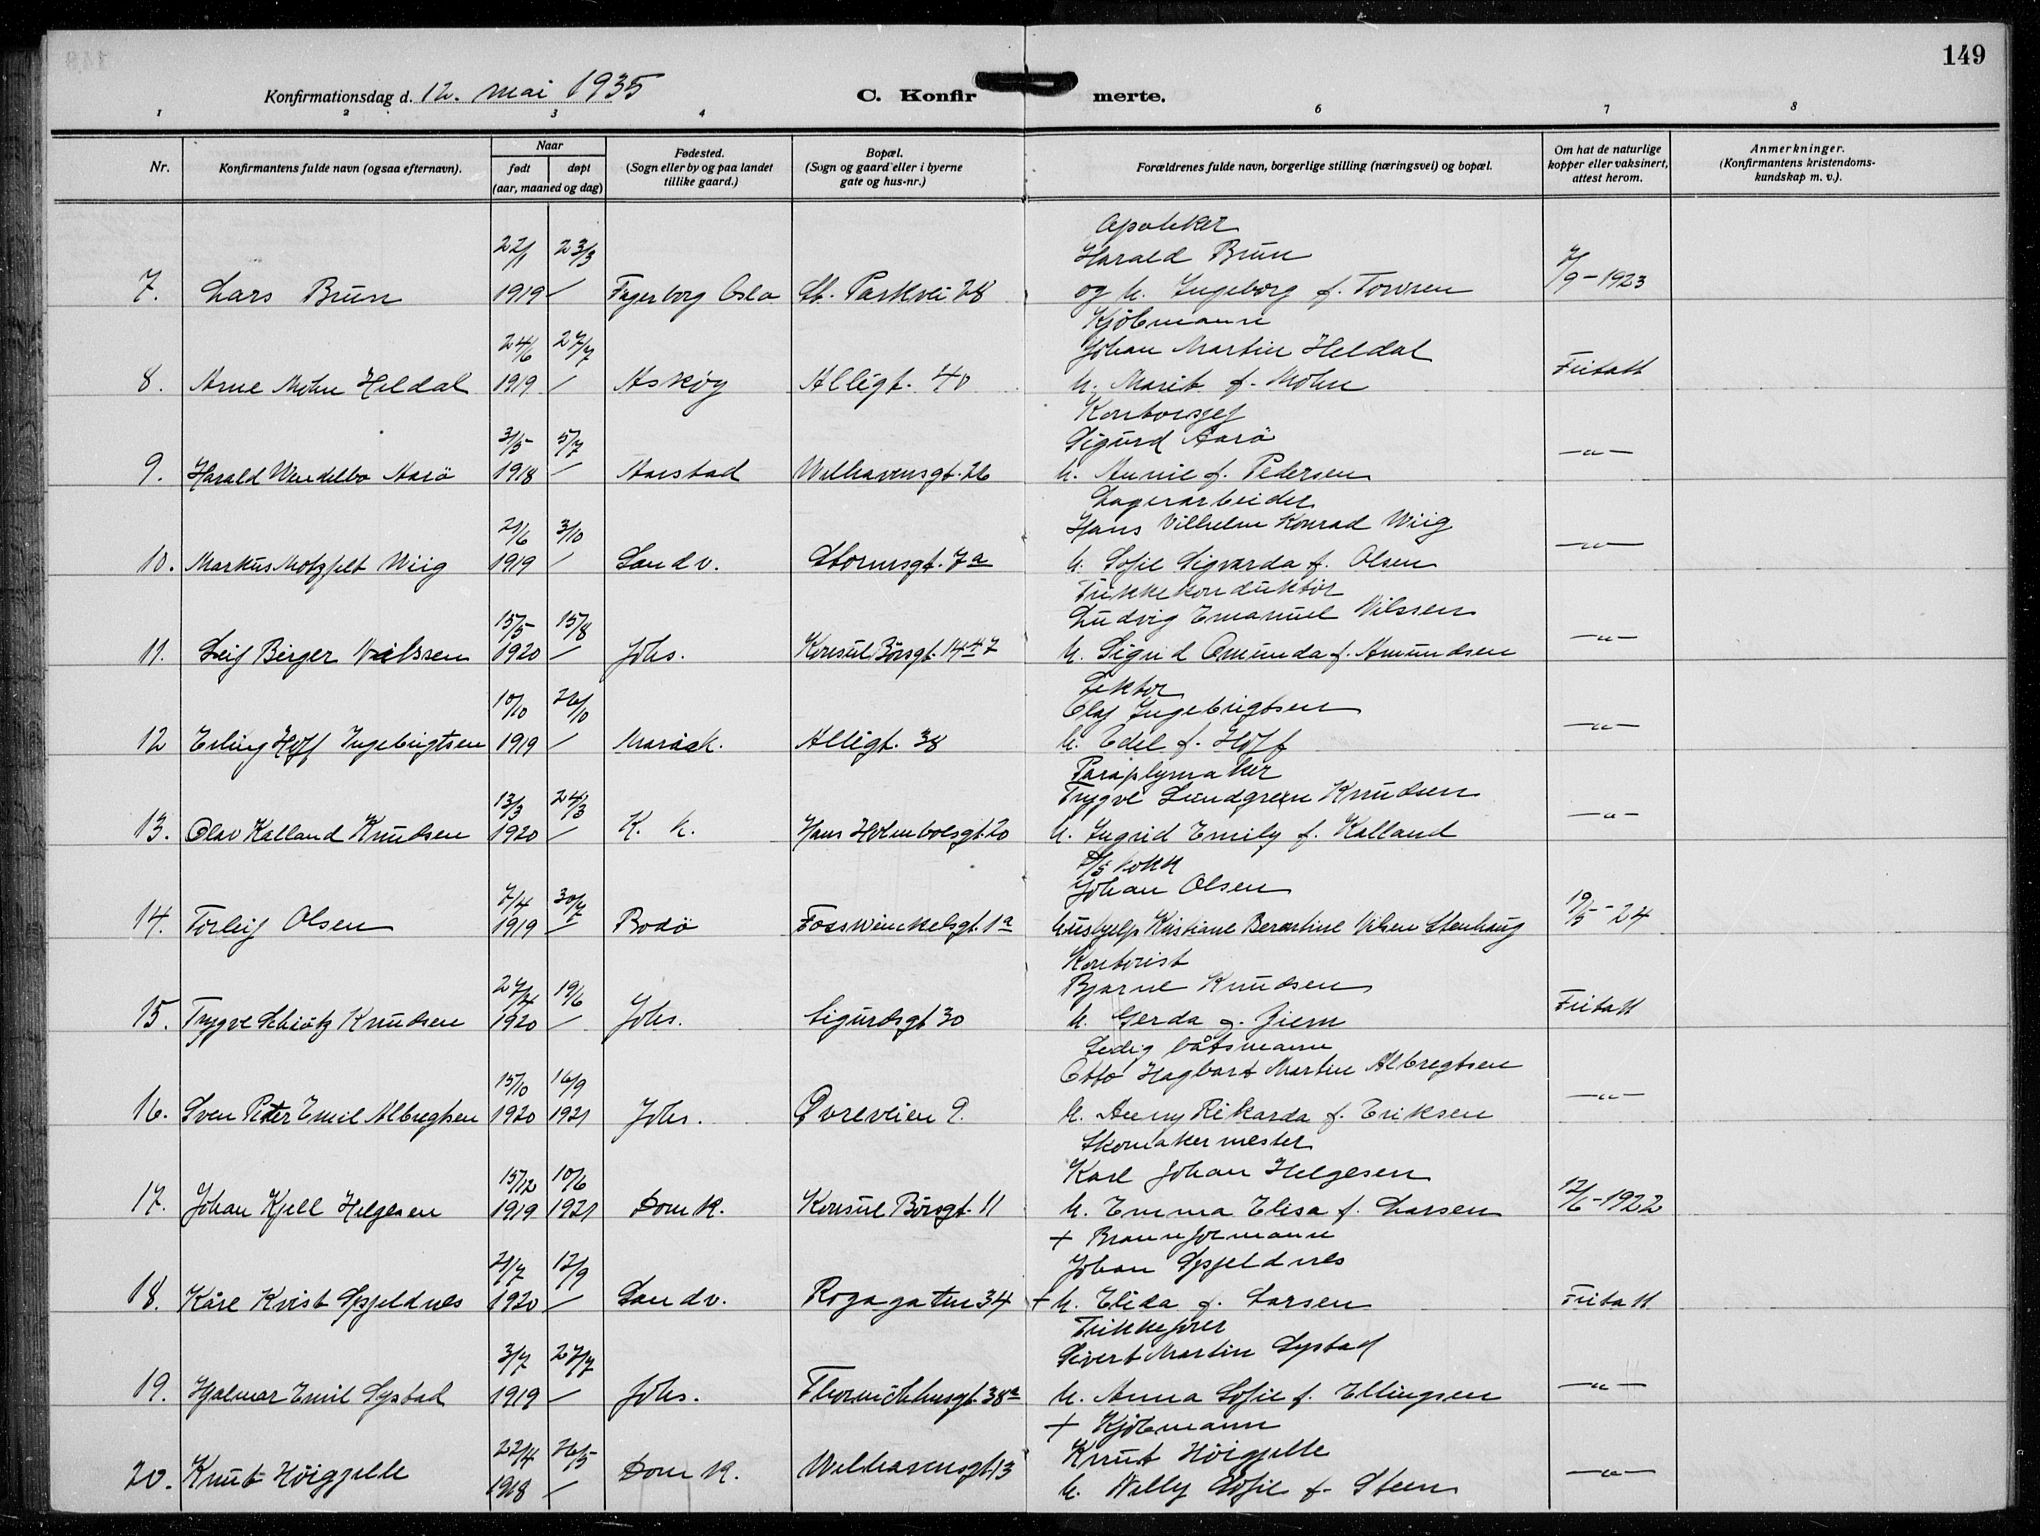 149
Konfirmationsdag d. 12. mai 1935
C. Konfirmerte.
1 2 3 4 6 7 8
Nr.
Konfirmantens fulde navn (ogsaa efternavn).
Naar
født
døpt
(aar, maaned og dag)
Fødested.
(Sogn eller by og paa landet
tillike gaard.)
Bopæl.
(Sogn og gaard eller i byerne
gate og hus-nr.)
Forældrenes fulde navn, borgerlige stilling (næringsvei) og bopæl.
Om hat de naturlige
kopper eller vaksinert,
attest herom.
Anmerkninger.
(Konfirmantens kristendoms-
kundskap m. v.).
Apoteker
22/1 23/3 Harald Brun
7. Lars Brun 1919 / Fagerborg Oslo St. Parkvei 28 og h. Ingeborg f. 7/9-1923
Kjöbmann
24/6 27/7 Johan Martin Heldal
8. Arne Mohn Heldal 1919 / Askøy Alligt. 40 h. Marit f. Mohn Fritatt
Kontorsjef
3/5 5/7 Sigurd Aarö
9. Harald Wendelbo Aarö 1918 / Aarstad Welhavensgt. 26 h. Annie f. Pedersen —"—
Lagerarbeider
2/6 3/10 Hans Vilhelm Konrad Wiig
10. Markus Motzfelt Wiig 1919 / Sandv. Stormsgt. 7a h. Sofie Sigvarda f. Olsen —"—
Trikkekonduktör
15/5 15/8 Ludvig Emanuel Nilssen
11. Leif Birger Nilssen 1920 / Johs. Konsul Börsgt. h. Sigrid Omunda f. Amundsen —"—
Lektor
10/10 26/10 Olaf Ingebrigtsen
12 Erling Hoff Ingebrigtsen 1919 / Alligt. 38 h. Edel f. Hoff —"—
Paraplymaker
13/3 24/3 Trygve Lundgreen Knudsen
13. Olav Kalland Knudsen 1920 / K. k. Hans Holmboesgt. 20 h. Ingrid Emily f. Kalland —"—
D/S kokk
7/4 30/7 Johan Olsen
14. Torleif Olsen 1919 / Bodö Fosswinckelsgt. 1a Kristiane Berentine Stenhaug 19/5-24
Kontorist
27/4 19/6 Bjarne Knudsen
15. Trygve Schiötz Knudsen 1920 / Johs. Sigurdsgt 30 h. Gerda f. Fritatt
Ledig båtsmann
15/10 16/9 Otto Hagbart Martin Albregtsen
16. Sven Peter Emil Albregtsen 1920 1921 Johs. Øvreveien 9. h. Anny Rikarda f. Eriksen —"—
Skomakermester
15/12 10/6 Karl Johan Helgesen
17. Johan Kjell Helgesen 1919 1921 Dom K. Konsul Börsgt. 11 h. Emma Elisa f. Larsen 12/6-1922
+ Brannformann
21/7 12/9 Johan Spjeldnes
18. Kåre Kvist Spjeldnes 1920 / Sandv. Rogagaten 34 + h. Elida f. Larsen Fritatt
Trikkefører
3/7 27/7 Sivert Martin Systad
19. Hjalmar Emil Systad 1919 / Johs. Thormöhlensgt. 38a h. Anna Sofie f. Ellingsen —"—
+ Kjöbmann
22/4 26/5 Knut Höigjelle
20. Knut Höigjelle 1918 / Dom K. Welhavensgt. 13 h. Willy Sofie f. Steen —"—